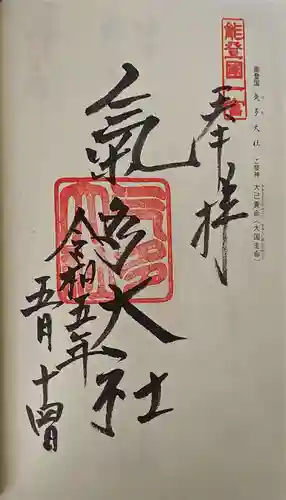 能登國一宮
能登国 気多大社 ご祭神 大己貴命（大国主命）
奉拝
氣多大社
令和五年
五月十四日